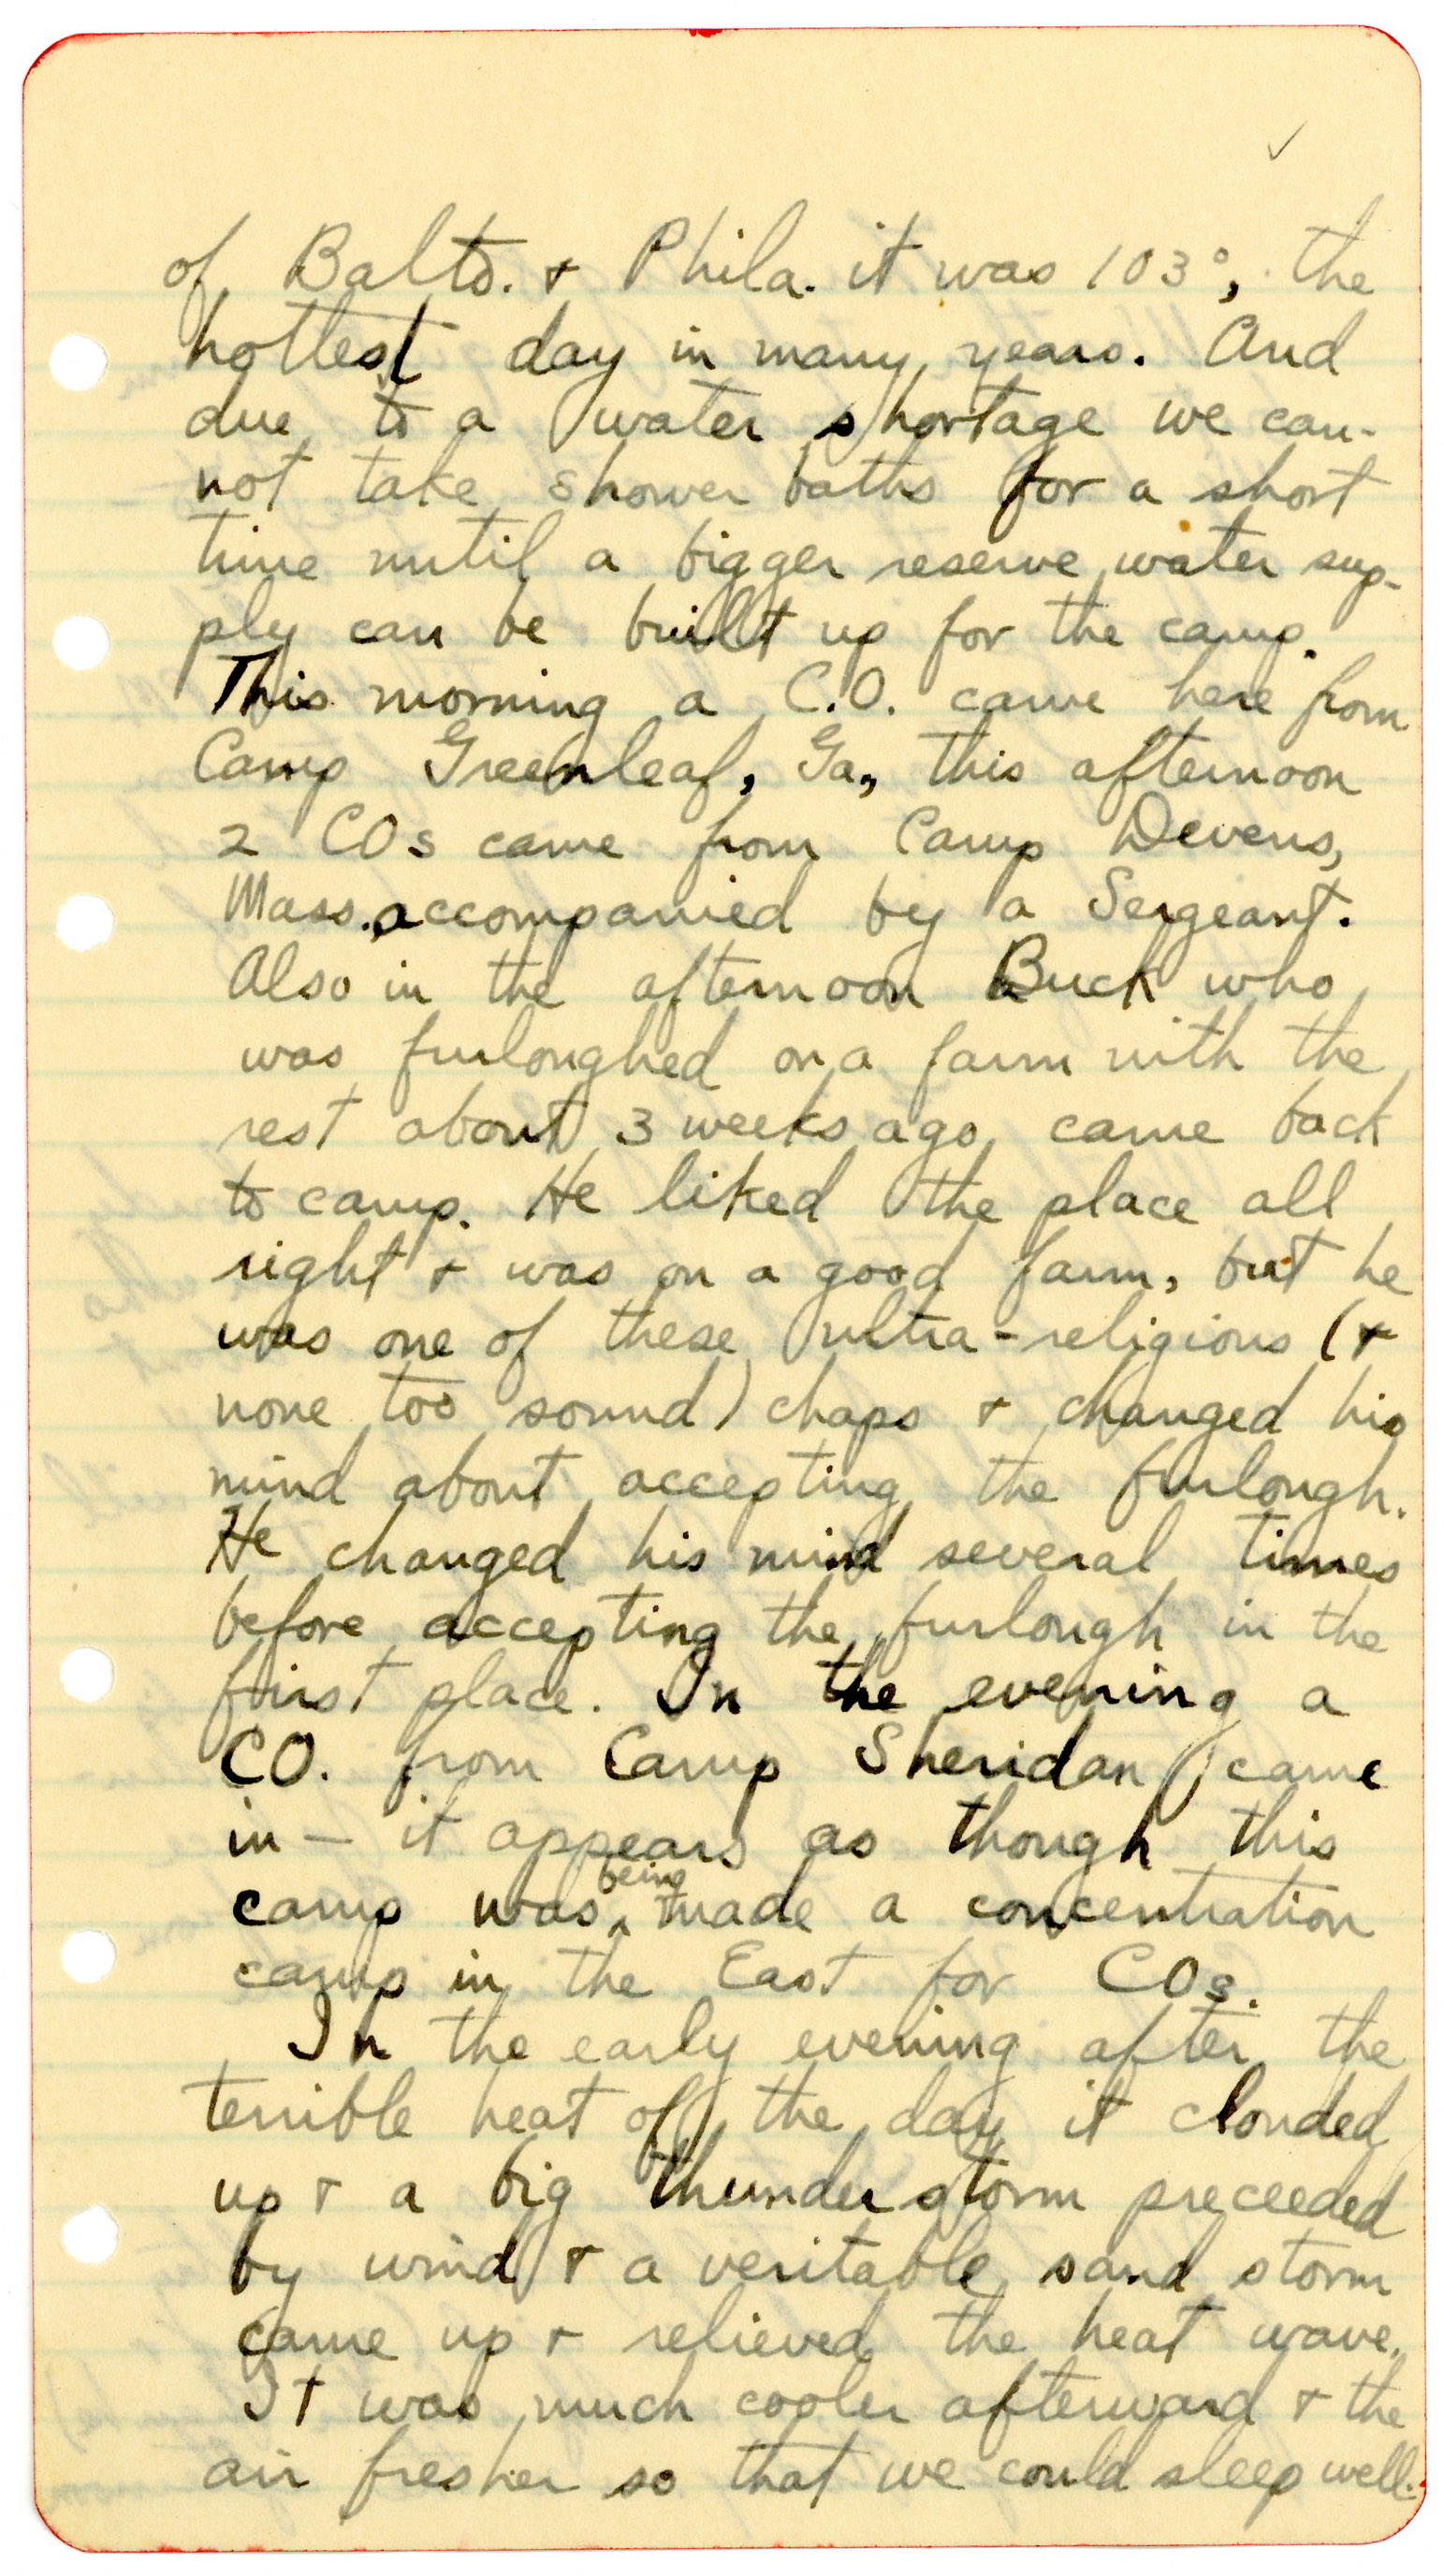 of Balto. + Phila. it was 103°, the
hottest day in many years. And
due to a water shortage we can-
not take shower baths for a short
time until a bigger reserve water sup-
ply can be built up for the camp.
This morning a C.O. came here from
Camp Greenleaf, Ga., this afternoon
2 COs came from Camp Devens,
Mass. accompanied by a Sergeant.
Also in the afternoon Buck who
was furloughed on a farm with the
rest about 3 weeks ago, came back
to camp. He liked the place all
right + was on a good farm, but he
was one of these ultra-religious (+
none too sound) chaps + changed his
mind about accepting the furlough.
He changed his mind several times
before accepting the furlough in the
first place. In the evening a
CO. from Camp Sheridan came
in - it appears as though this
camp was being made a concentration
camp in the East for COs.
In the early evening after the
terrible heat of the day it clouded
up + a big thunder storm preceeded
by wind + a veritable sand storm
came up + relieved the heat wave.
It was much cooler afterward + the
air fresher so that we could sleep well.